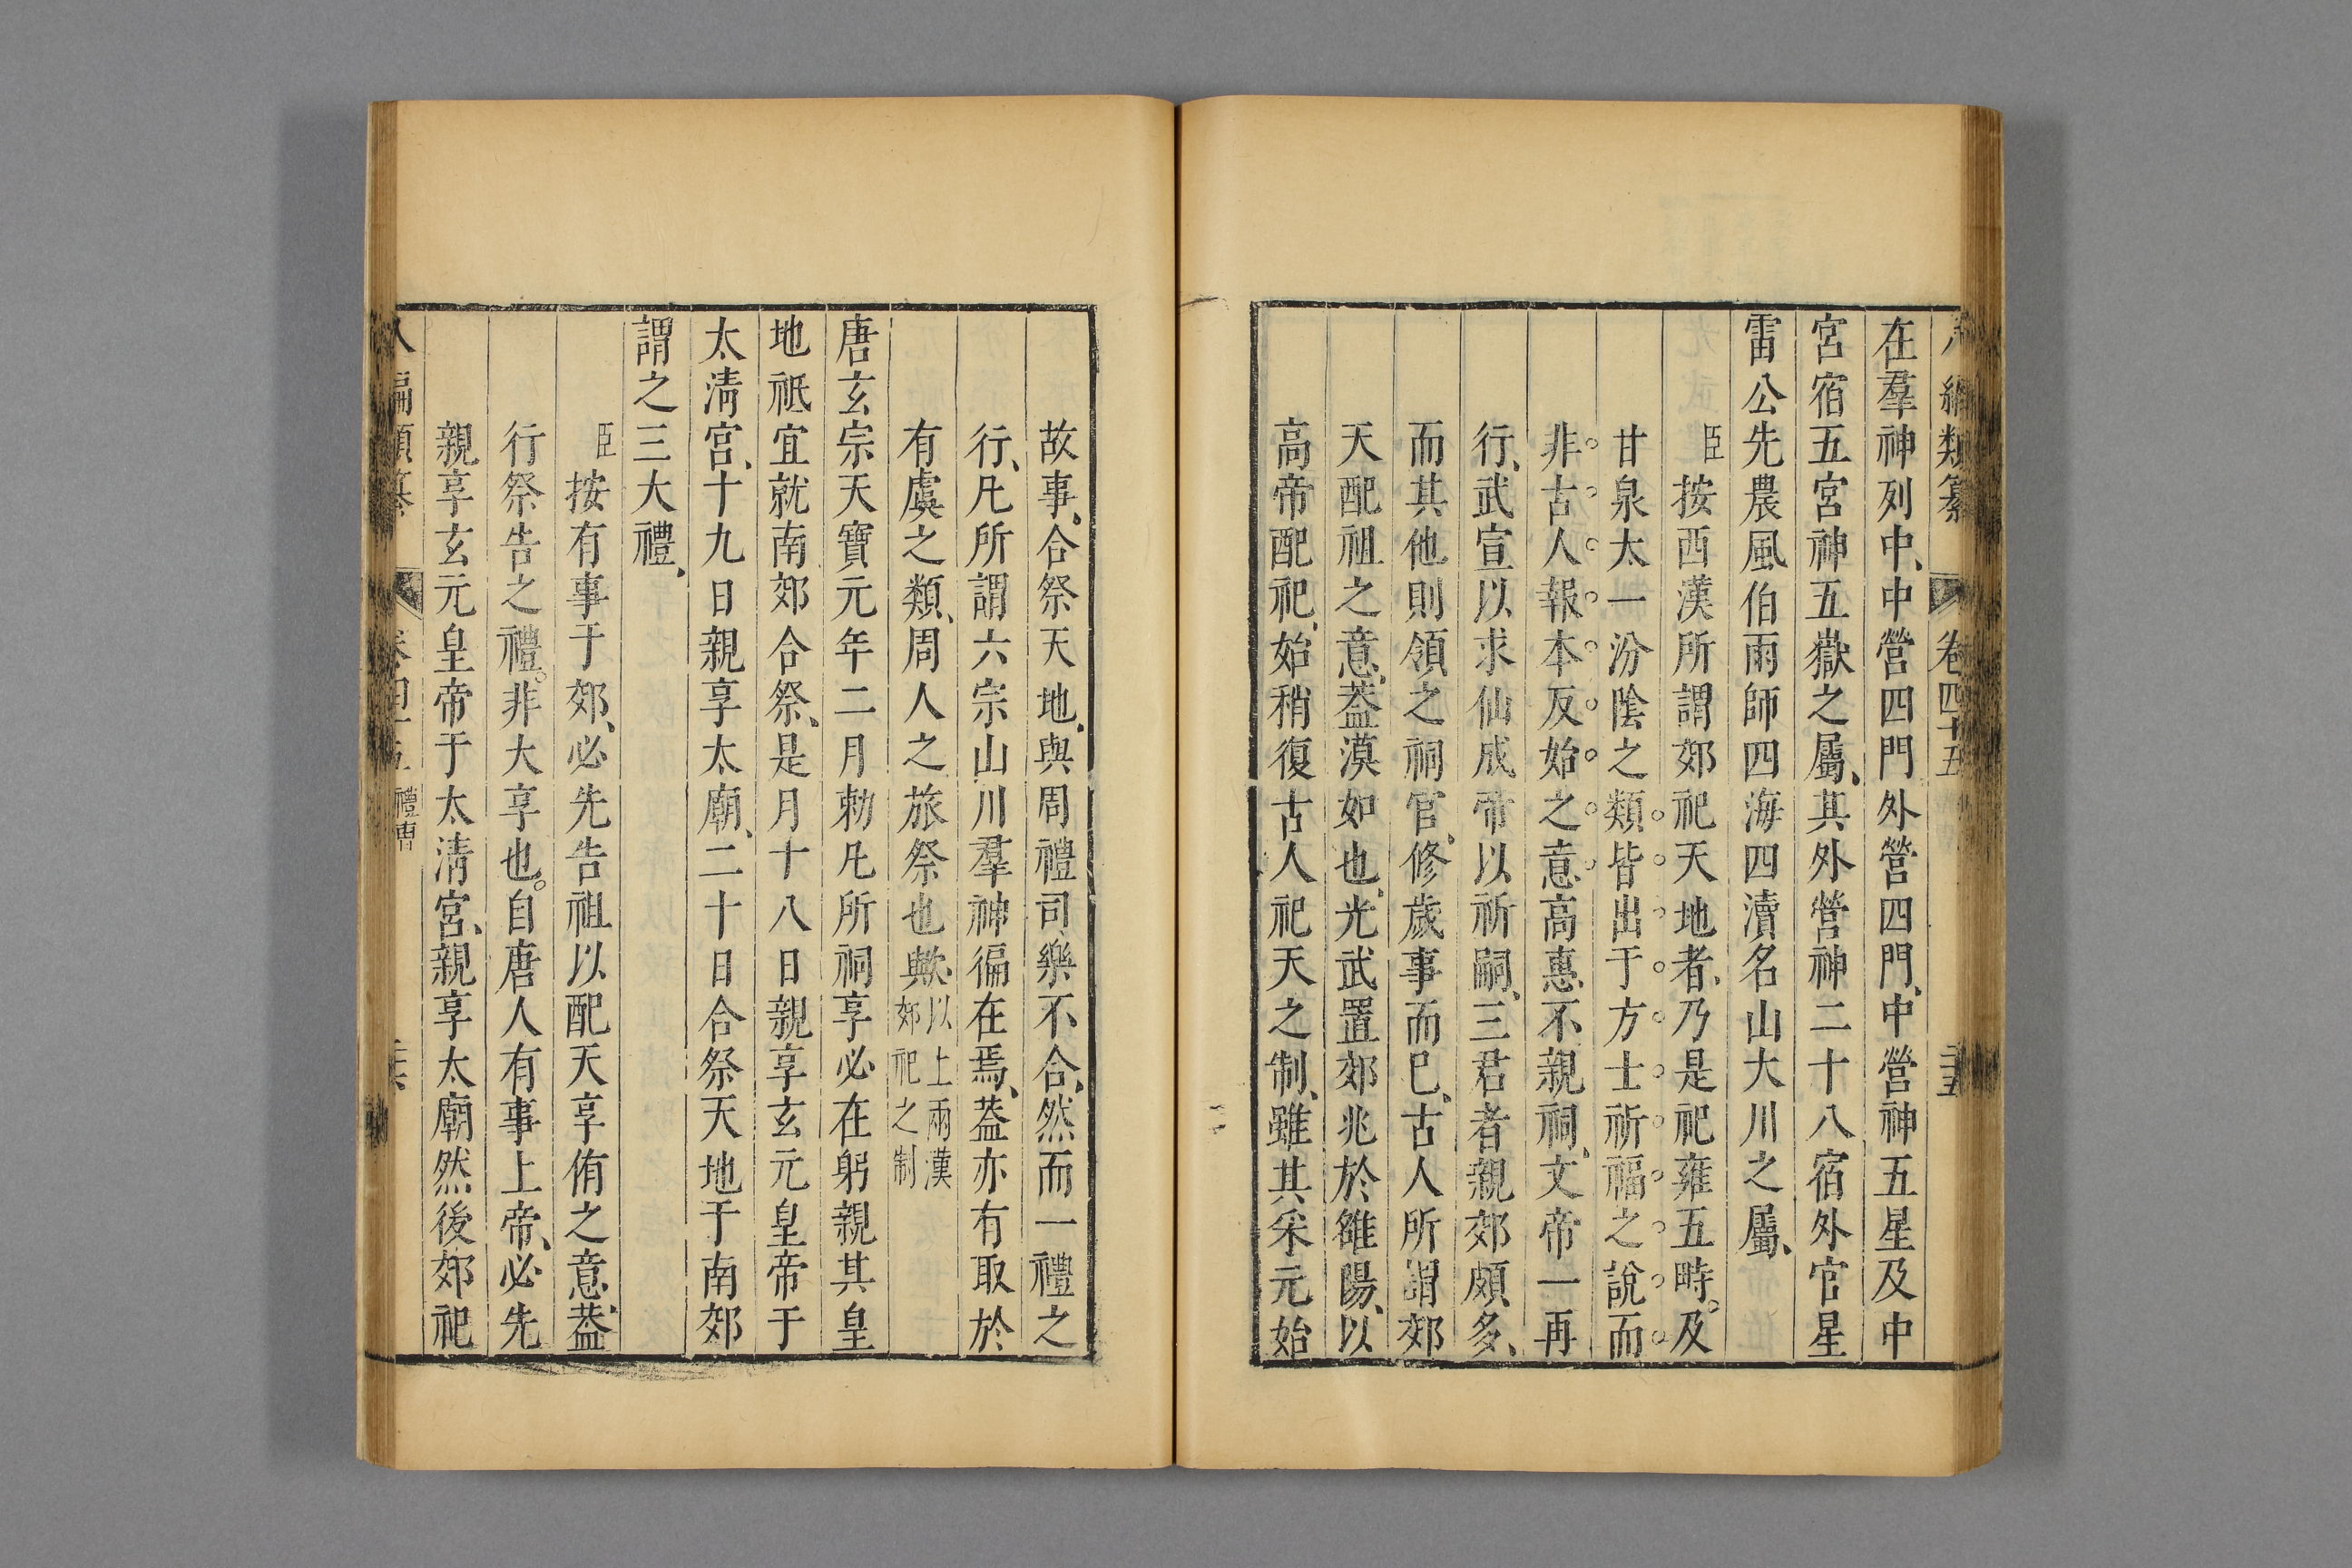 編類纂 卷四十五
在羣神列中、中營四門外營四門、中營神五星及中
宮宿五宮神五嶽之屬、其外營神二十八宿外官星
雷公先農風伯雨師四海四瀆名山大川之屬、
臣按西漢所謂郊祀天地者、乃是祀雍五畤。及
甘泉太一汾陰之類皆出于方士祈福之說而
非古人報本反始之意高惠不親祠、文帝一再
行、武宣以求仙成帝以祈嗣、三君者親郊頗多、
而其他則領之祠官、修歲事而已、古人所謂郊
天配祖之意、葢漠如也、光武置郊兆於雒陽、以
高帝配祀、始稍復古人祀天之制、雖其采元始
故事、合祭天地、與周禮司樂不合、然而一禮之
行、凡所謂六宗山川羣神徧在焉、葢亦有取於
有虞之類、周人之旅祭也歟、以上兩漢郊祀之制
唐玄宗天寶元年二月勑凡所祠享必在躬親其皇
地祇宜就南郊合祭、是月十八日親享玄元皇帝于
太淸宮、十九日親享太廟、二十日合祭天地于南郊
謂之三大禮、
臣按有事于郊、必先告祖以配天享侑之意、葢
行祭告之禮。非大享也。自唐人有事上帝、必先
親享玄元皇帝于太淸宮、親享太廟然後郊祀
禮曹